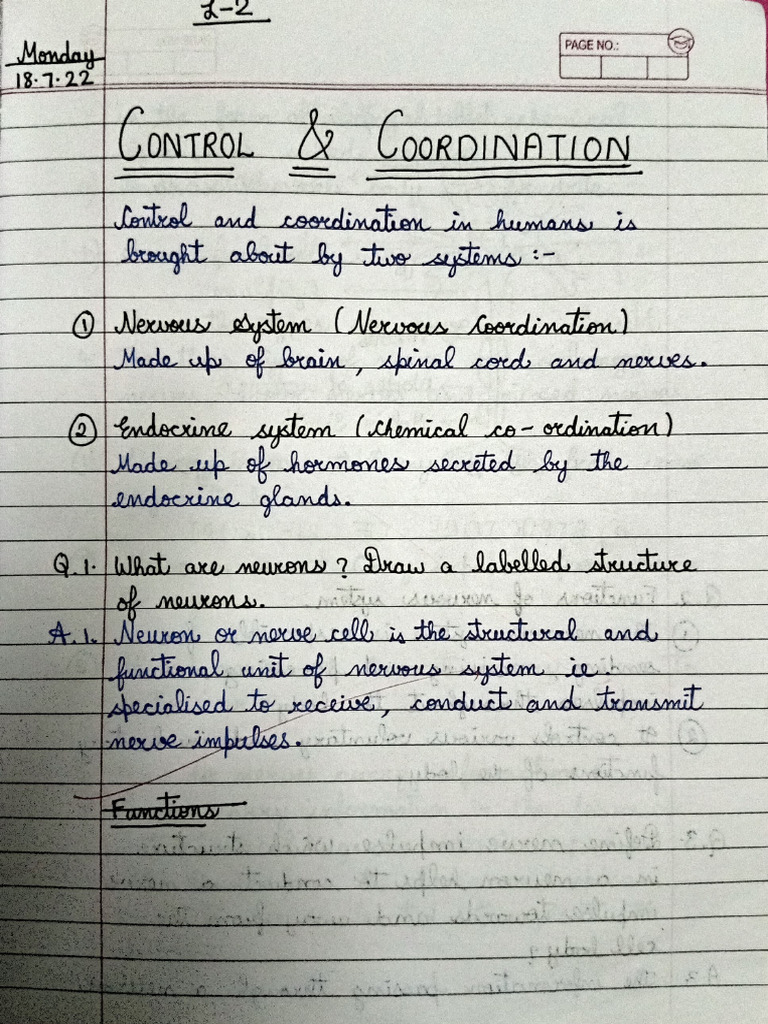 L-2
Monday
18.7.22
PAGE NO.:
CONTROL & COORDINATION
Control and coordination in humans is
brought about by two systems :-
① Nervous system (Nervous Coordination)
Made up of brain, spinal cord and nerves.
② Endocrine system (Chemical co-ordination)
Made up of hormones secreted by the
endocrine glands.
Q.1. What are neurons? Draw a labelled structure
of neurons.
A.1. Neuron or nerve cell is the structural and
functional unit of nervous system ie.
specialised to receive, conduct and transmit
nerve impulses.
Functions